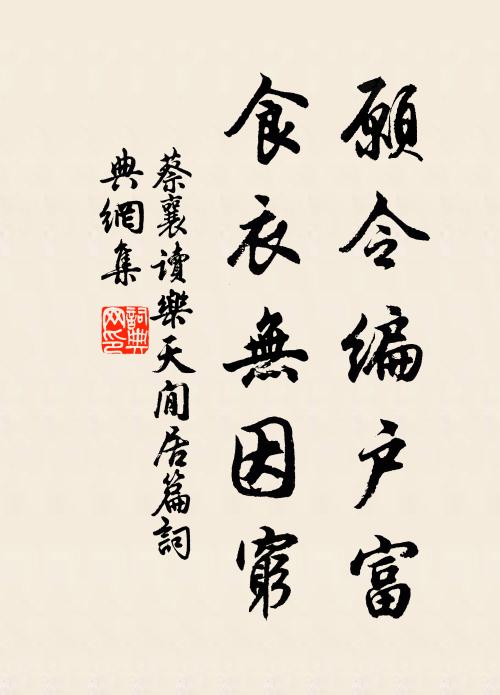 願令編户富
食衣無因窮
蔡襄讀樂天閒居篇詞
典網集
詞典网印